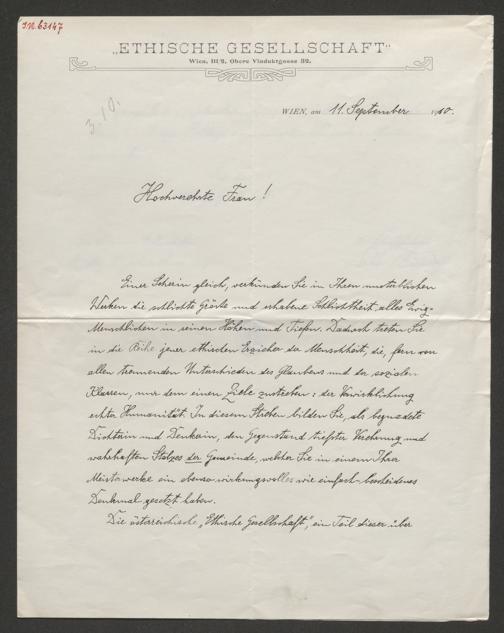 I.N. 63147
„ETHISCHE GESELLSCHAFT"
Wien, III/2, Obere Viaduktgasse 32.
3.10.
WIEN, am 11. September 1910.
Hochverehrte Frau!
Einer Seherin gleich, verkünden Sie in Ihren unsterblichen
Werken die schlichte Größe und erhabene Schlichtheit alles Ewig-
Menschlichen in seinen Höhen und Tiefen. Dadurch treten Sie
in die Reihe jener ethischen Erzieher der Menschheit, die, fern von
allen trennenden Unterschieden des Glaubens und der sozialen
Klassen, nur dem einen Ziele zustreben: der Verwirklichung
echter Humanität. In diesem Streben bilden Sie, als begnadete
Dichterin und Denkerin, den Gegenstand tiefster Verehrung und
wahrhaften Stolzes der Gemeinde, welcher Sie in einem Ihrer
Meisterwerke ein ebenso wirkungsvolles wie einfach-bescheidenes
Denkmal gesetzt haben.
Die österreichische „Ethische Gesellschaft", ein Teil dieser über